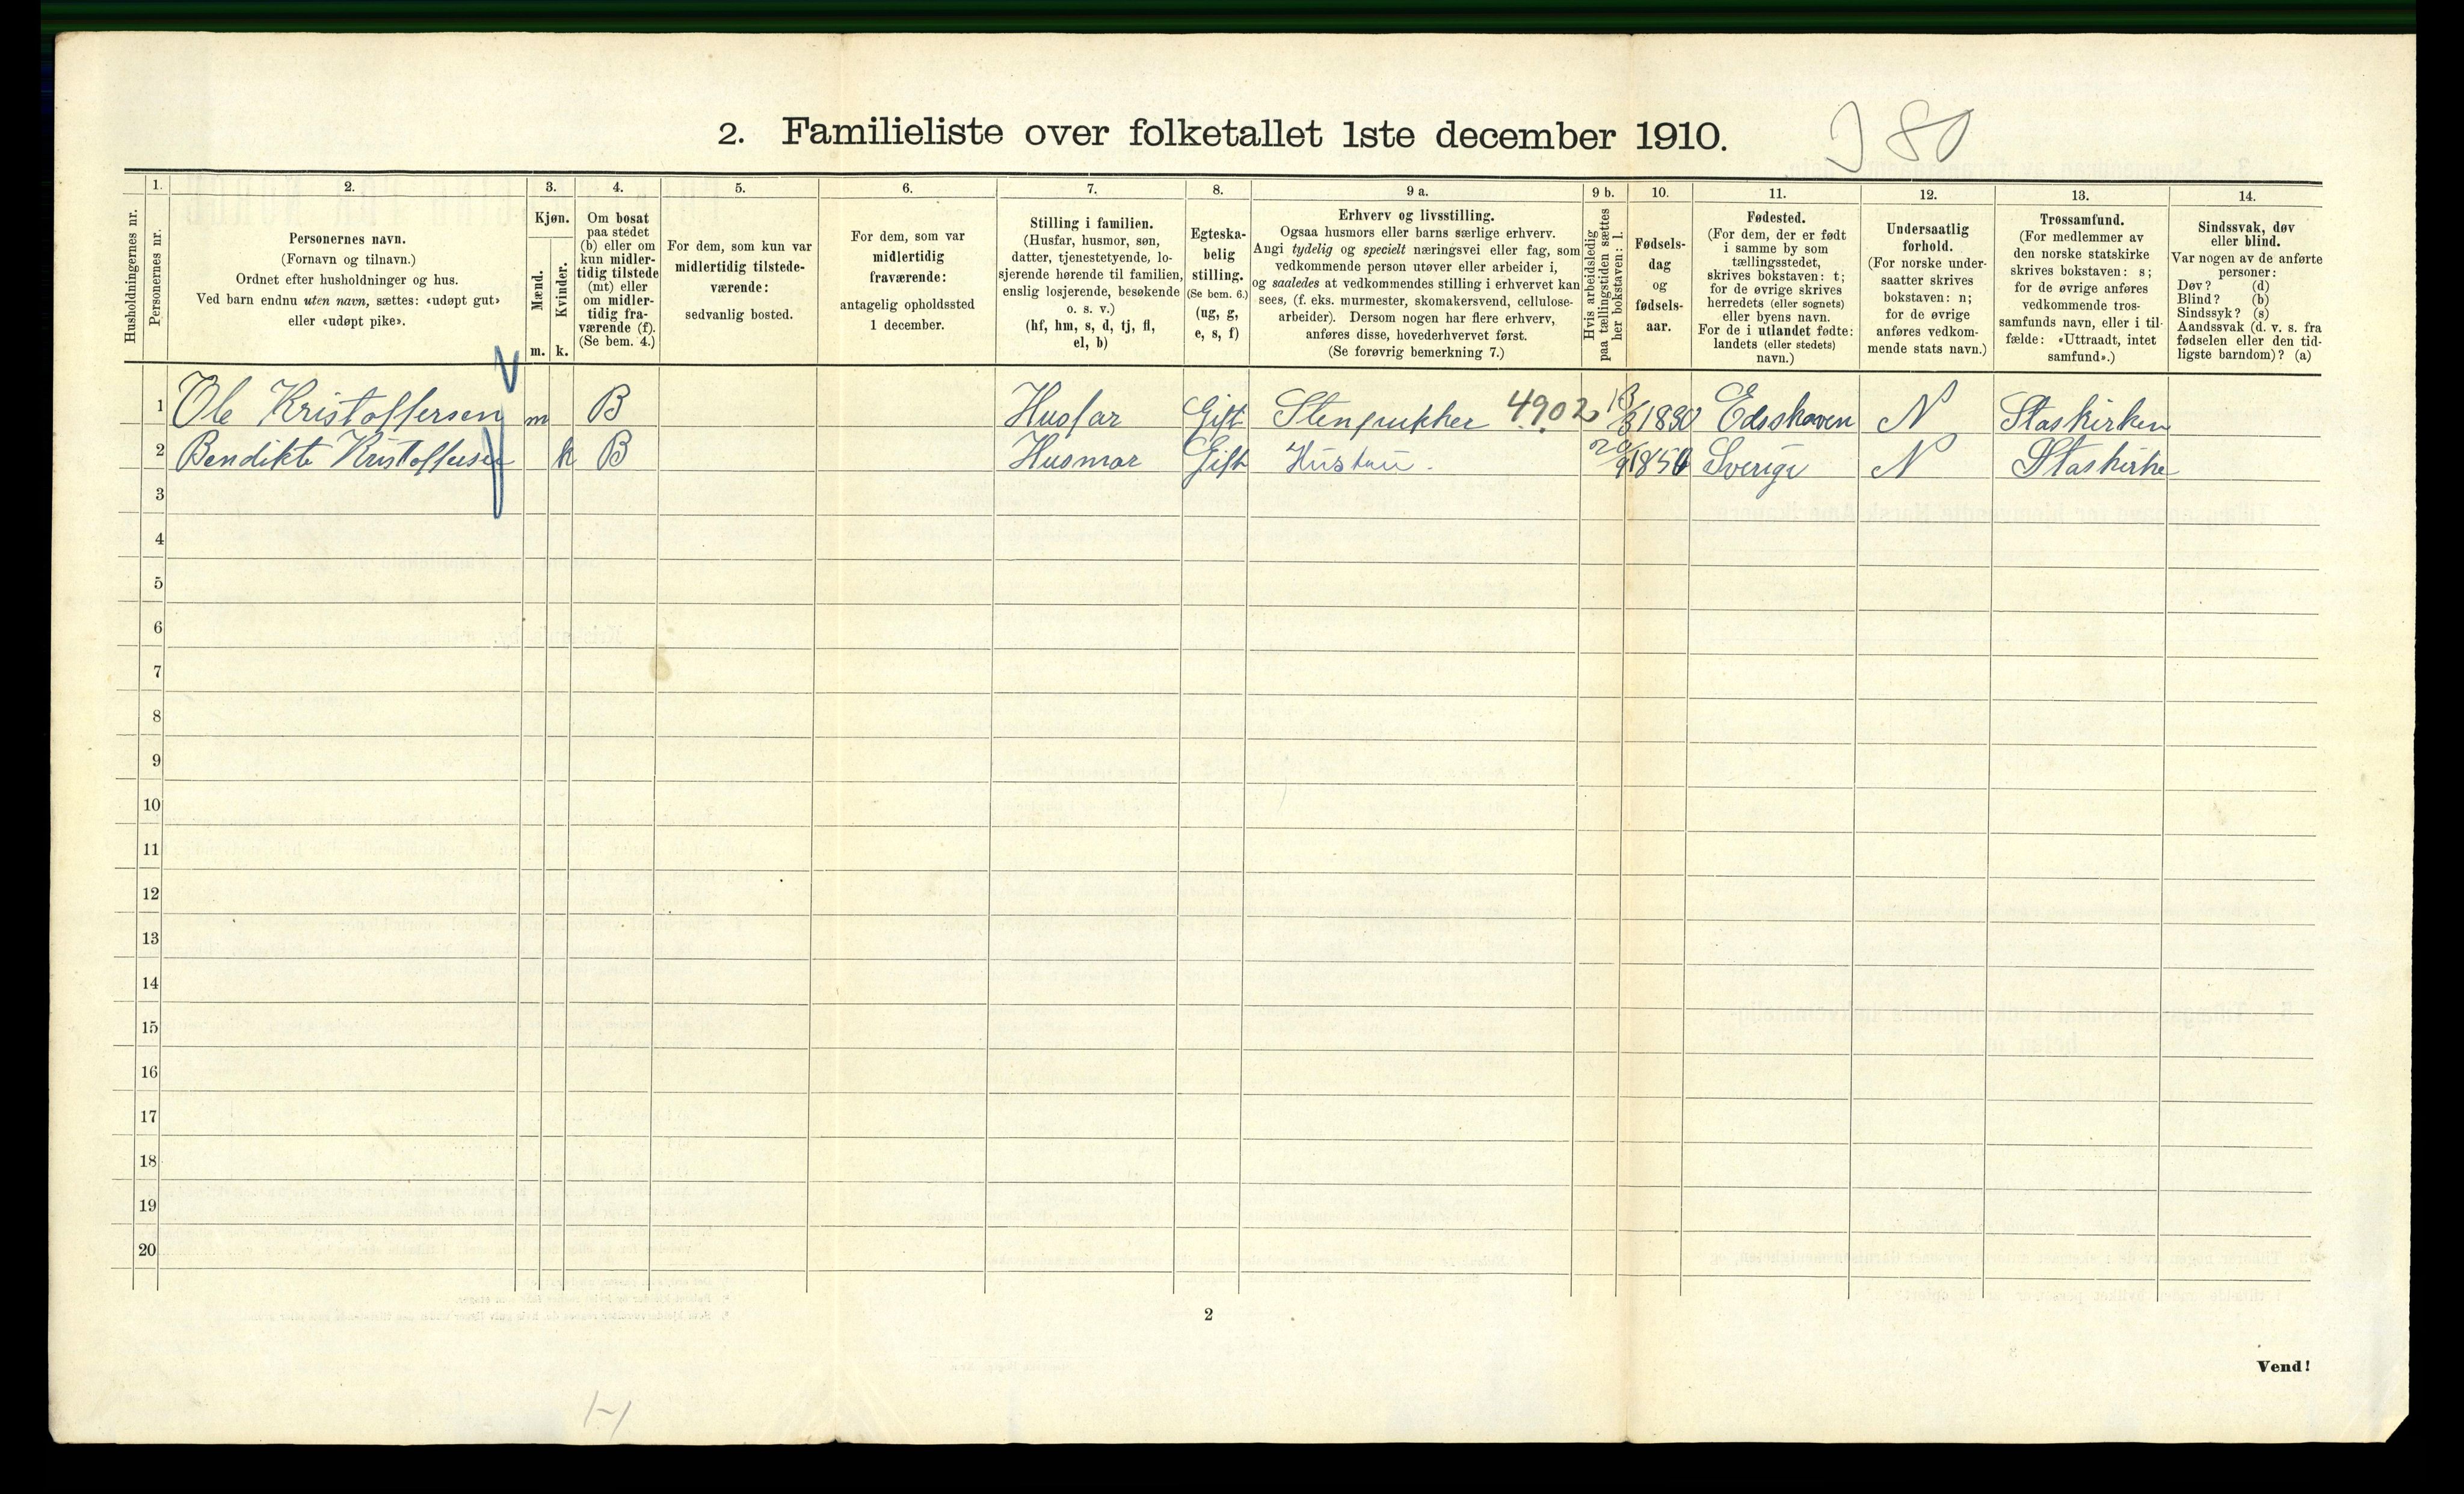 2. Familieliste over folketallet 1ste december 1910.
J 80
Husholdningernes nr.
1.
Personernes nr.
2.
Personernes navn.
(Fornavn og tilnavn.)
Ordnet efter husholdninger og hus.
Ved barn endnu uten navn, sættes: «udøpt gut»
eller «udøpt pike».
3.
Kjøn.
Mænd.
Kvinder.
m. k.
4.
Om bosat
paa stedet
(b) eller om
kun midler-
tidig tilstede
(mt) eller
om midler-
tidig fra-
værende (f).
(Se bem. 4.)
5.
For dem, som kun var
midlertidig tilstede-
værende:
sedvanlig bosted.
6.
For dem, som var
midlertidig
fraværende:
antagelig opholdssted
1 december.
7.
Stilling i familien.
(Husfar, husmor, søn,
datter, tjenestetyende, lo-
sjerende hørende til familien,
enslig losjerende, besøkende
o. s. v.)
(hf, hm, s, d, tj, fl,
el, b)
8.
Egteska-
belig
stilling.
(Se bem. 6.)
(ug, g,
e, s, f)
9 a.
Erhverv og livsstilling.
Ogsaa husmors eller barns særlige erhverv.
Angi tydelig og specielt næringsvei eller fag, som
vedkommende person utøver eller arbeider i,
og saaledes at vedkommendes stilling i erhvervet kan
sees, (f. eks. murmester, skomakersvend, cellulose-
arbeider). Dersom nogen har flere erhverv,
anføres disse, hovederhvervet først.
(Se forøvrig bemerkning 7.)
9 b.
Hvis arbeidsledig
paa tællingstiden sættes
her bokstaven: l.
10.
Fødsels-
dag
og
fødsels-
aar.
11.
Fødested.
(For dem, der er født
i samme by som
tællingsstedet,
skrives bokstaven: t;
for de øvrige skrives
herredets (eller sognets)
eller byens navn.
For de i utlandet fødte:
landets (eller stedets)
navn.)
12.
Undersaatlig
forhold.
(For norske under-
saatter skrives
bokstaven: n;
for de øvrige
anføres vedkom-
mende stats navn.)
13.
Trossamfund.
(For medlemmer av
den norske statskirke
skrives bokstaven: s;
for de øvrige anføres
vedkommende tros-
samfunds navn, eller i til-
fælde: «Uttraadt, intet
samfund».)
14.
Sindssvak, døv
eller blind.
Var nogen av de anførte
personer:
Døv? (d)
Blind? (b)
Sindssyk? (s)
Aandssvak (d. v. s. fra
fødselen eller den tid-
ligste barndom)? (a)
1 Ole Kristoffersen m B Husfar Gift 4902 Edsskoven N Staskirken
2 Bendikte Kristoffersen k B Husmor Gift Hustru. Sverige N Staskirke
3
4
5
6
7
8
9
10
11
12
13
14
15
16
17
18
19
20
2
Vend!